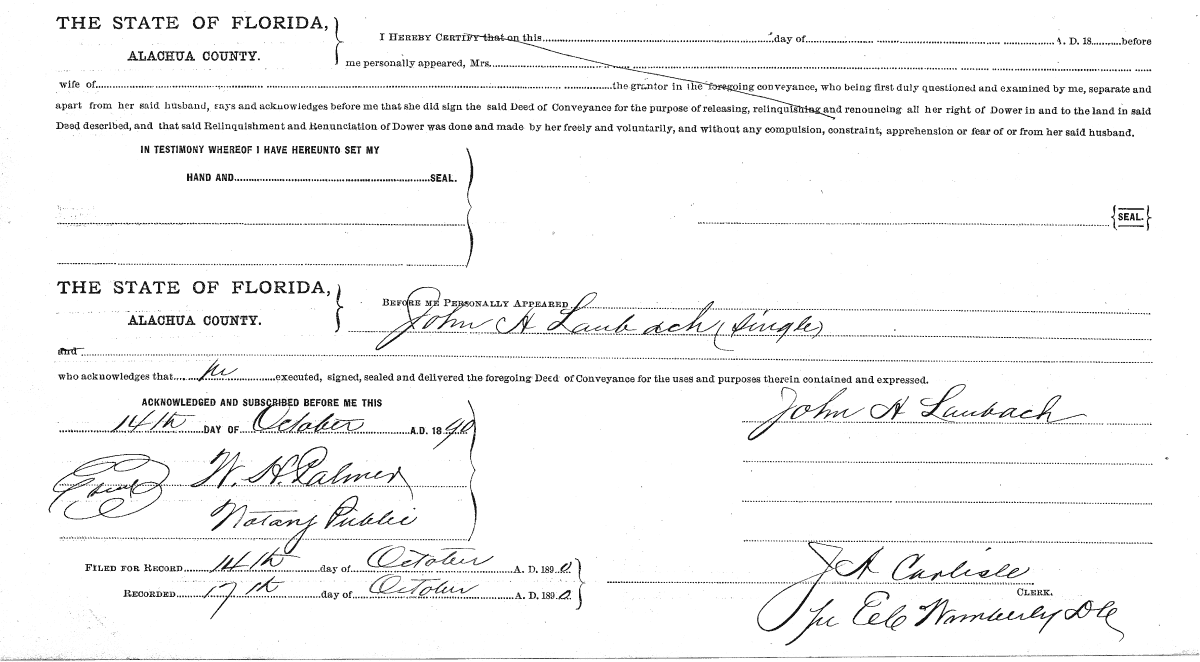 THE STATE OF FLORIDA,
ALACHUA COUNTY.
I HEREBY CERTIFY that on this day of A. D. 18 before
me personally appeared, Mrs.
wife of the grantor in the foregoing conveyance, who being first duly questioned and examined by me, separate and
apart from her said husband, says and acknowledges before me that she did sign the said Deed of Conveyance for the purpose of releasing, relinquishing and renouncing all her right of Dower in and to the land in said
Deed described, and that said Relinquishment and Renunciation of Dower was done and made by her freely and voluntarily, and without any compulsion, constraint, apprehension or fear of or from her said husband.
IN TESTIMONY WHEREOF I HAVE HEREUNTO SET MY
HAND AND SEAL.
SEAL.
THE STATE OF FLORIDA,
ALACHUA COUNTY.
BEFORE ME PERSONALLY APPEARED
John H Laubach (single)
and
who acknowledges that he executed, signed, sealed and delivered the foregoing Deed of Conveyance for the uses and purposes therein contained and expressed.
ACKNOWLEDGED AND SUBSCRIBED BEFORE ME THIS
14th DAY OF October A.D. 1890
John H Laubach
Seal W. H. Palmer
Notary Public
FILED FOR RECORD 14th day of October A. D. 1890
RECORDED 17th day of October A. D. 1890
J A Carlisle
CLERK.
Wimberly DC